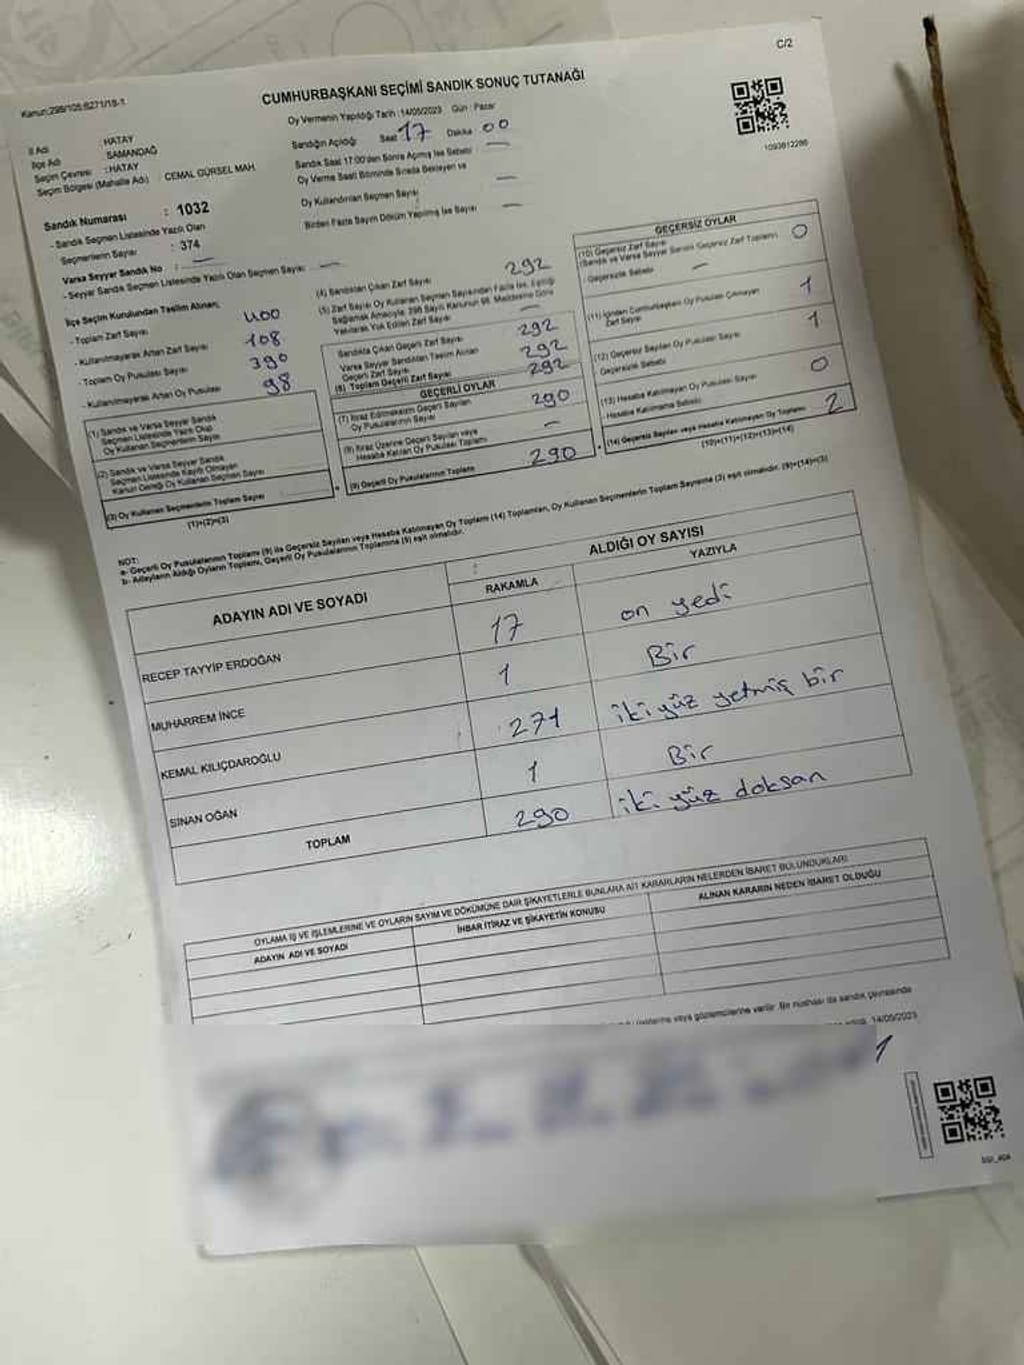 C/2
Kanun;298/105;6271/18-1
CUMHURBAŞKANI SEÇİMİ SANDIK SONUÇ TUTANAĞI
Oy Vermenin Yapıldığı Tarih :14/05/2023 Gün : Pazar
İl Adı : HATAY
İlçe Adı SAMANDAĞ
Seçim Çevresi : HATAY
Seçim Bölgesi (Mahalle Adı) : CEMAL GÜRSEL MAH.
Sandığın Açıldığı Saat 17 Dakika 00
Sandık Saat 17:00'den Sonra Açılmış İse Sebebi —
Oy Verme Saati Bitiminde Sırada Bekleyen ve
Oy Kullandırılan Seçmen Sayısı —
Birden Fazla Sayım Döküm Yapılmış İse Sayısı —
1093812286
Sandık Numarası : 1032
- Sandık Seçmen Listesinde Yazılı Olan
Seçmenlerin Sayısı : 374
Varsa Seyyar Sandık No : —
- Seyyar Sandık Seçmen Listesinde Yazılı Olan Seçmen Sayısı —
İlçe Seçim Kurulundan Teslim Alınan;
- Toplam Zarf Sayısı 400
- Kullanılmayarak Artan Zarf Sayısı 108
- Toplam Oy Pusulası Sayısı 390
- Kullanılmayarak Artan Oy Pusulası 98
(1) Sandık ve Varsa Seyyar Sandık
Seçmen Listesinde Yazılı Olup
Oy Kullanan Seçmenlerin Sayısı
(2) Sandık ve Varsa Seyyar Sandık
Seçmen Listesinde Kayıtlı Olmayan
Kanun Gereği Oy Kullanan Seçmen Sayısı
(3) Oy Kullanan Seçmenlerin Toplam Sayısı
(1)+(2)=(3)
(4) Sandıktan Çıkan Zarf Sayısı 292
(5) Zarf Sayısı Oy Kullanan Seçmen Sayısından Fazla İse, Eşitliği
Sağlamak Amacıyla, 298 Sayılı Kanunun 98. Maddesine Göre
Yakılarak Yok Edilen Zarf Sayısı —
Sandıkta Çıkan Geçerli Zarf Sayısı 292
Varsa Seyyar Sandıktan Teslim Alınan
Geçerli Zarf Sayısı 292
(6) Toplam Geçerli Zarf Sayısı 292
GEÇERLİ OYLAR
(7) İtiraz Edilmeksizin Geçerli Sayılan
Oy Pusulalarının Sayısı 290
(8) İtiraz Üzerine Geçerli Sayılan veya
Hesaba Katılan Oy Pusulası Toplamı —
(9) Geçerli Oy Pusulalarının Toplamı 290
GEÇERSİZ OYLAR
(10) Geçersiz Zarf Sayısı
(Sandık ve Varsa Seyyar Sandık Geçersiz Zarf Toplamı) 0
- Geçersizlik Sebebi —
(11) İçinden Cumhurbaşkanı Oy Pusulası Çıkmayan
Zarf Sayısı 1
(12) Geçersiz Sayılan Oy Pusulası Sayısı 1
Geçersizlik Sebebi
(13) Hesaba Katılmayan Oy Pusulası Sayısı 0
- Hesaba Katılmama Sebebi
(14) Geçersiz Sayılan veya Hesaba Katılmayan Oy Toplamı 2
(10)+(11)+(12)+(13)=(14)
NOT:
a- Geçerli Oy Pusulalarının Toplamı (9) ile Geçersiz Sayılan veya Hesaba Katılmayan Oy Toplamı (14) Toplamları, Oy Kullanan Seçmenlerin Toplam Sayısına (3) eşit olmalıdır. (9)+(14)=(3)
b- Adayların Aldığı Oyların Toplamı, Geçerli Oy Pusulalarının Toplamına (9) eşit olmalıdır.
ADAYIN ADI VE SOYADI
ALDIĞI OY SAYISI
RAKAMLA YAZIYLA
RECEP TAYYİP ERDOĞAN 17 on yedi
MUHARREM İNCE 1 Bir
KEMAL KILIÇDAROĞLU 271 iki yüz yetmiş bir
SİNAN OĞAN 1 Bir
TOPLAM 290 iki yüz doksan
OYLAMA İŞ VE İŞLEMLERİNE VE OYLARIN SAYIM VE DÖKÜMÜNE DAİR ŞİKAYETLERLE BUNLARA AİT KARARLARIN NELERDEN İBARET BULUNDUKLARI
ADAYIN ADI VE SOYADI
İHBAR İTİRAZ VE ŞİKAYETİN KONUSU
ALINAN KARARIN NEDEN İBARET OLDUĞU
veya gözlemcilerine verilir. Bir nüshası da sandık çevresinde
14/05/2023